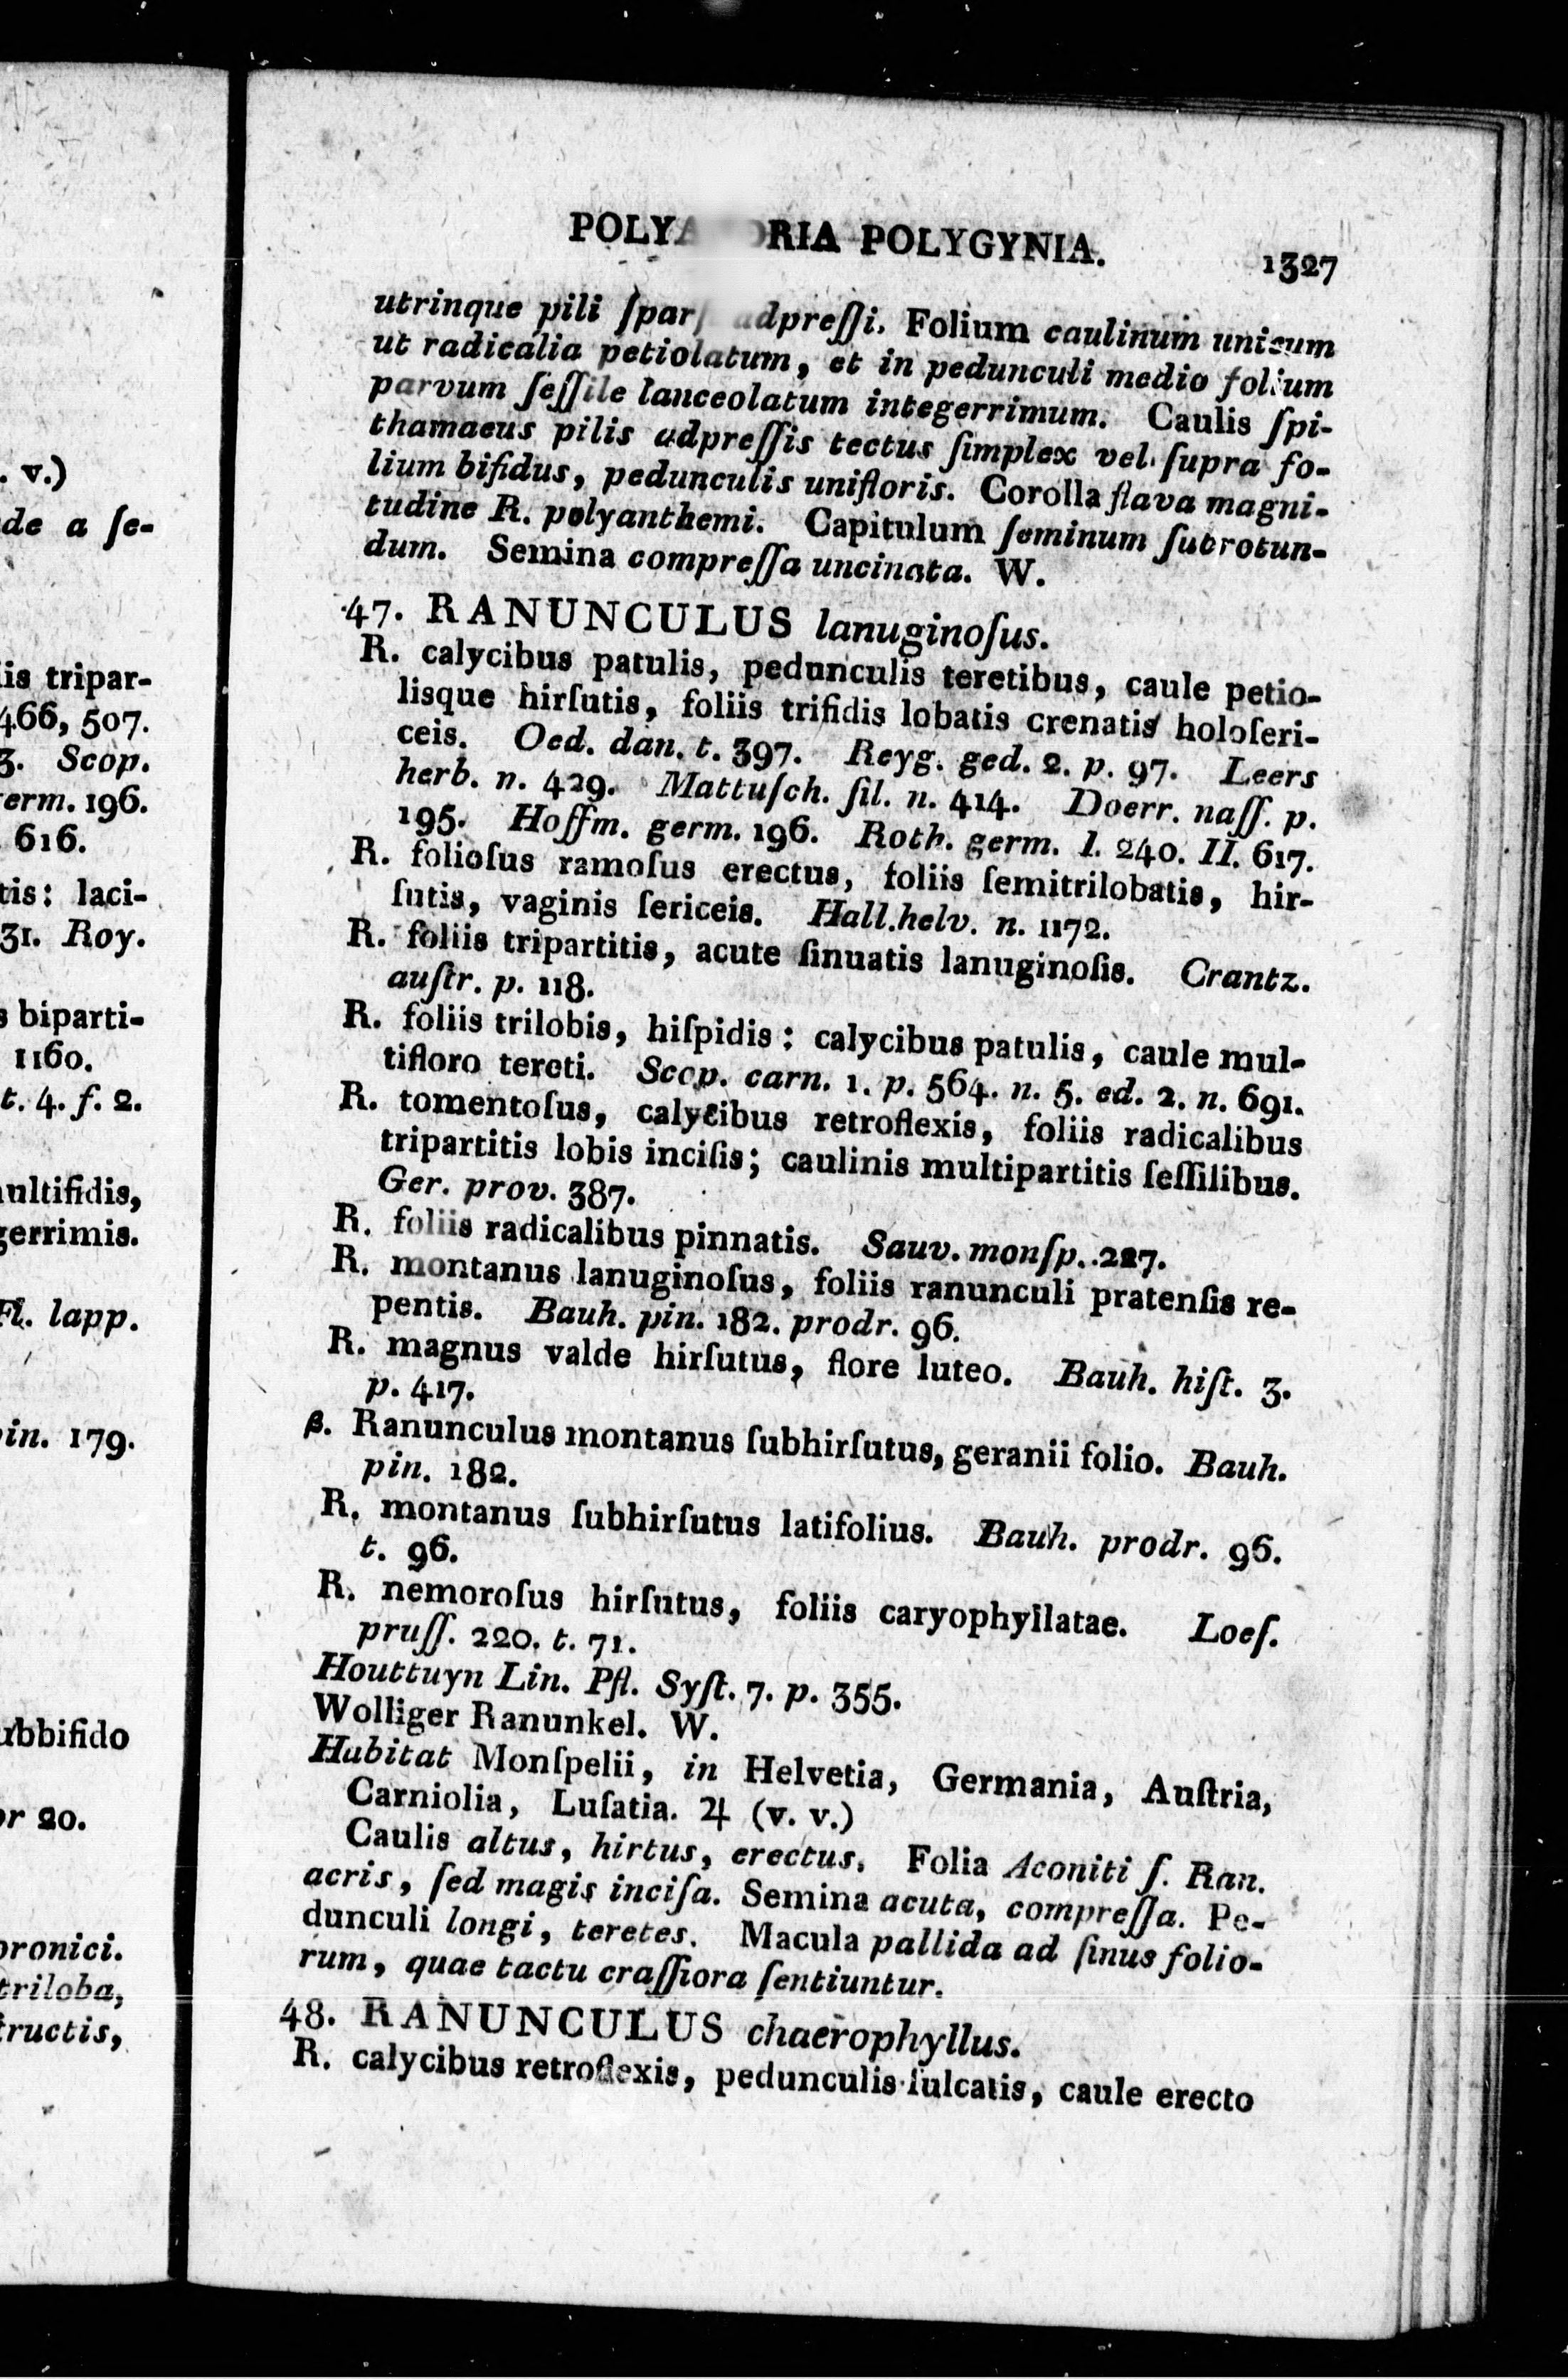 . v.)
de a ſe-
is tripar-
466, 507.
3. Scop.
erm. 196.
616.
tis: laci-
31. Roy.
s biparti-
1160.
t. 4. f. 2.
ultifidis,
gerrimis.
Fl. lapp.
in. 179.
ubbifido
or 20.
oronici.
triloba,
tructis,
POLYA RIA POLYGYNIA.
1327
utrinque pili adpreſſi. Folium caulinum unicum
ut radicalia petiolatum, et in pedunculi medio folium
parvum ſeſſile lanceolatum integerrimum. Caulis ſpi-
thamaeus pilis adpreſſis tectus ſimplex vel ſupra fo-
lium bifidus, pedunculis unifloris. Corolla flava magni-
tudine R. polyanthemi. Capitulum ſeminum ſubrotun-
dum. Semina compreſſa uncinata. W.
47. RANUNCULUS lanuginoſus.
R. calycibus patulis, pedunculis teretibus, caule petio-
lisque hirſutis, foliis trifidis lobatis crenatis holoſeri-
ceis. Oed. dan. t. 397. Reyg. ged. 2. p. 97. Leers
herb. n. 429. Mattuſch. ſil. n. 414. Doerr. naſſ. p.
195. Hoffm. germ. 196. Roth. germ. I. 240. II. 617.
R. folioſus ramoſus erectus, foliis ſemitrilobatis, hir-
ſutis, vaginis ſericeis. Hall. helv. n. 1172.
R. foliis tripartitis, acute ſinuatis lanuginoſis. Crantz.
auſtr. p. 118.
R. foliis trilobis, hiſpidis: calycibus patulis, caule mul-
tifloro tereti. Scop. carn. 1. p. 564. n. 5. ed. 2. n. 691.
R. tomentoſus, calycibus retroflexis, foliis radicalibus
tripartitis lobis inciſis; caulinis multipartitis ſeſſilibus.
Ger. prov. 387.
R. foliis radicalibus pinnatis. Sauv. monſp. 227.
R. montanus lanuginoſus, foliis ranunculi pratenſis re-
pentis. Bauh. pin. 182. prodr. 96.
R. magnus valde hirſutus, flore luteo. Bauh. hiſt. 3.
p. 417.
β. Ranunculus montanus ſubhirſutus, geranii folio. Bauh.
pin. 182.
R. montanus ſubhirſutus latifolius. Bauh. prodr. 96.
t. 96.
R. nemoroſus hirſutus, foliis caryophyllatae. Loeſ.
pruſſ. 220. t. 71.
Houttuyn Lin. Pfl. Syſt. 7. p. 355.
Wolliger Ranunkel. W.
Habitat Monſpelii, in Helvetia, Germania, Auſtria,
Carniolia, Luſatia. ♃ (v. v.)
Caulis altus, hirtus, erectus. Folia Aconiti ſ. Ran.
acris, ſed magis inciſa. Semina acuta, compreſſa. Pe-
dunculi longi, teretes. Macula pallida ad ſinus folio-
rum, quae tactu craſſiora ſentiuntur.
48. RANUNCULUS chaerophyllus.
R. calycibus retroflexis, pedunculis ſulcatis, caule erecto